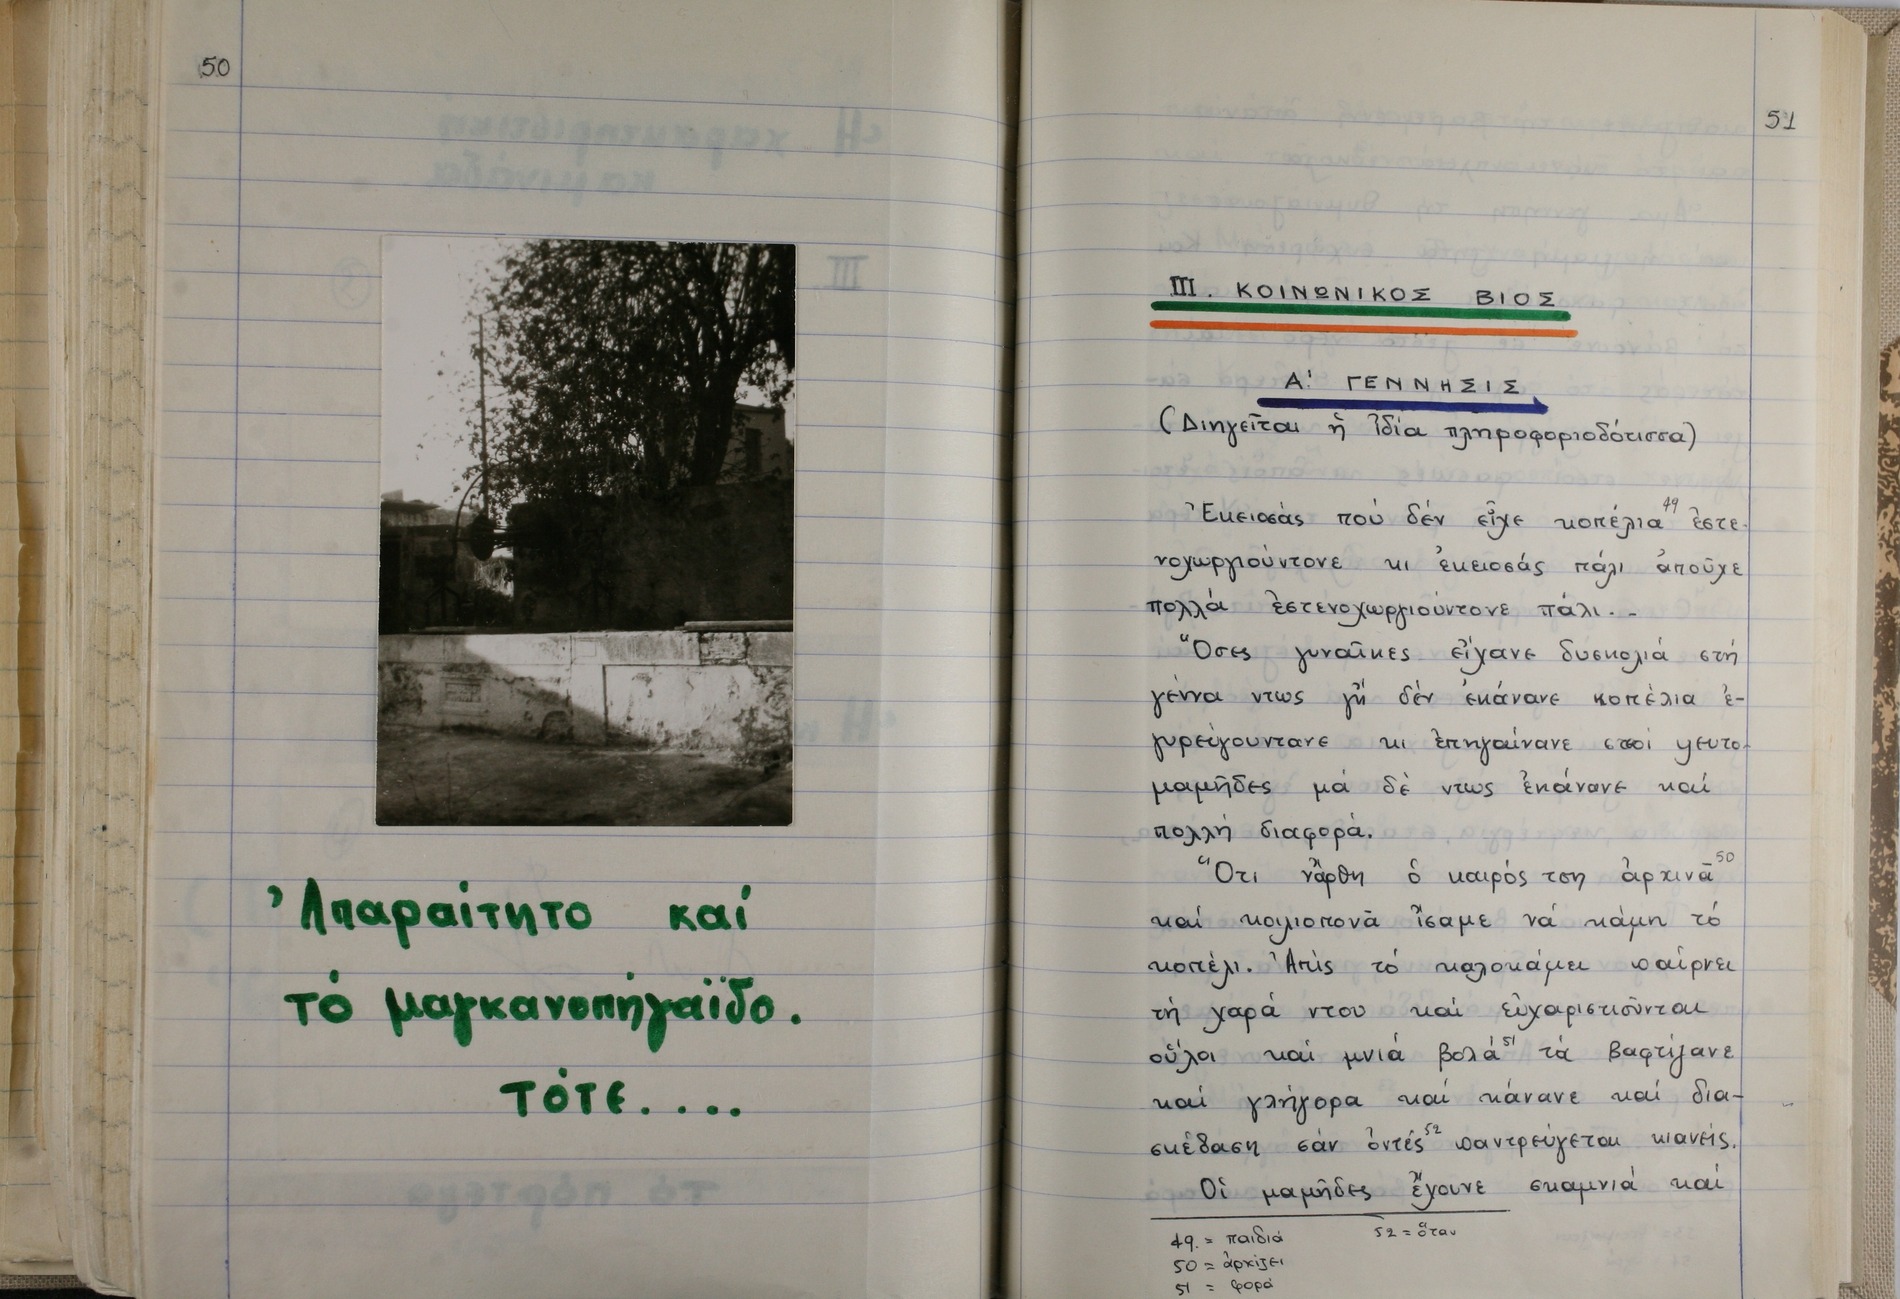 50
Ἀπαραίτητο καί
τό μαγκανοπήγαϊδο.
τότε....
51
III. ΚΟΙΝΩΝΙΚΟΣ ΒΙΟΣ
Α! ΓΕΝΝΗΣΙΣ
(Διηγεῖται ἡ ἰδία πληροφοριοδότισσα)
Ἐκειοσάς πού δέν εἶχε κοπέλια⁴⁹ ἐστε-
νοχωργιούντονε κι ἐκειοσάς πάλι ἀποῦχε
πολλά ἐστενοχωργιούντονε πάλι..
Ὅσες γυναῖκες εἴχανε δυσκολιά στή
γέννα ντως γἤ δέν ἐκάνανε κοπέλια ἐ-
γυρεύγουντανε κι ἐπηγαίνανε στσί ψευτο-
μαμῆδες μά δέ ντως ἐκάνανε καί
πολλή διαφορά.
Ὅτι νἄρθη ὁ καιρός τση ἀρχινᾶ⁵⁰
καί κοιλιοπονᾶ ἴσαμε νά κάμη τό
κοπέλι. Ἀπίς τό καλοκάμει παίρνει
τή χαρά ντου καί εὐχαριστιοῦνται
οὖλοι καί μνιά βολά⁵¹ τά βαφτίζανε
καί γλήγορα καί κάνανε καί δια-
σκέδαση σάν ὀντές⁵² παντρεύγεται κιανείς.
Οἱ μαμῆδες ἔχουνε σκαμνιά καί
49. = παιδιά
52 = ὅταν
50 = ἀρχίζει
51 = φορά